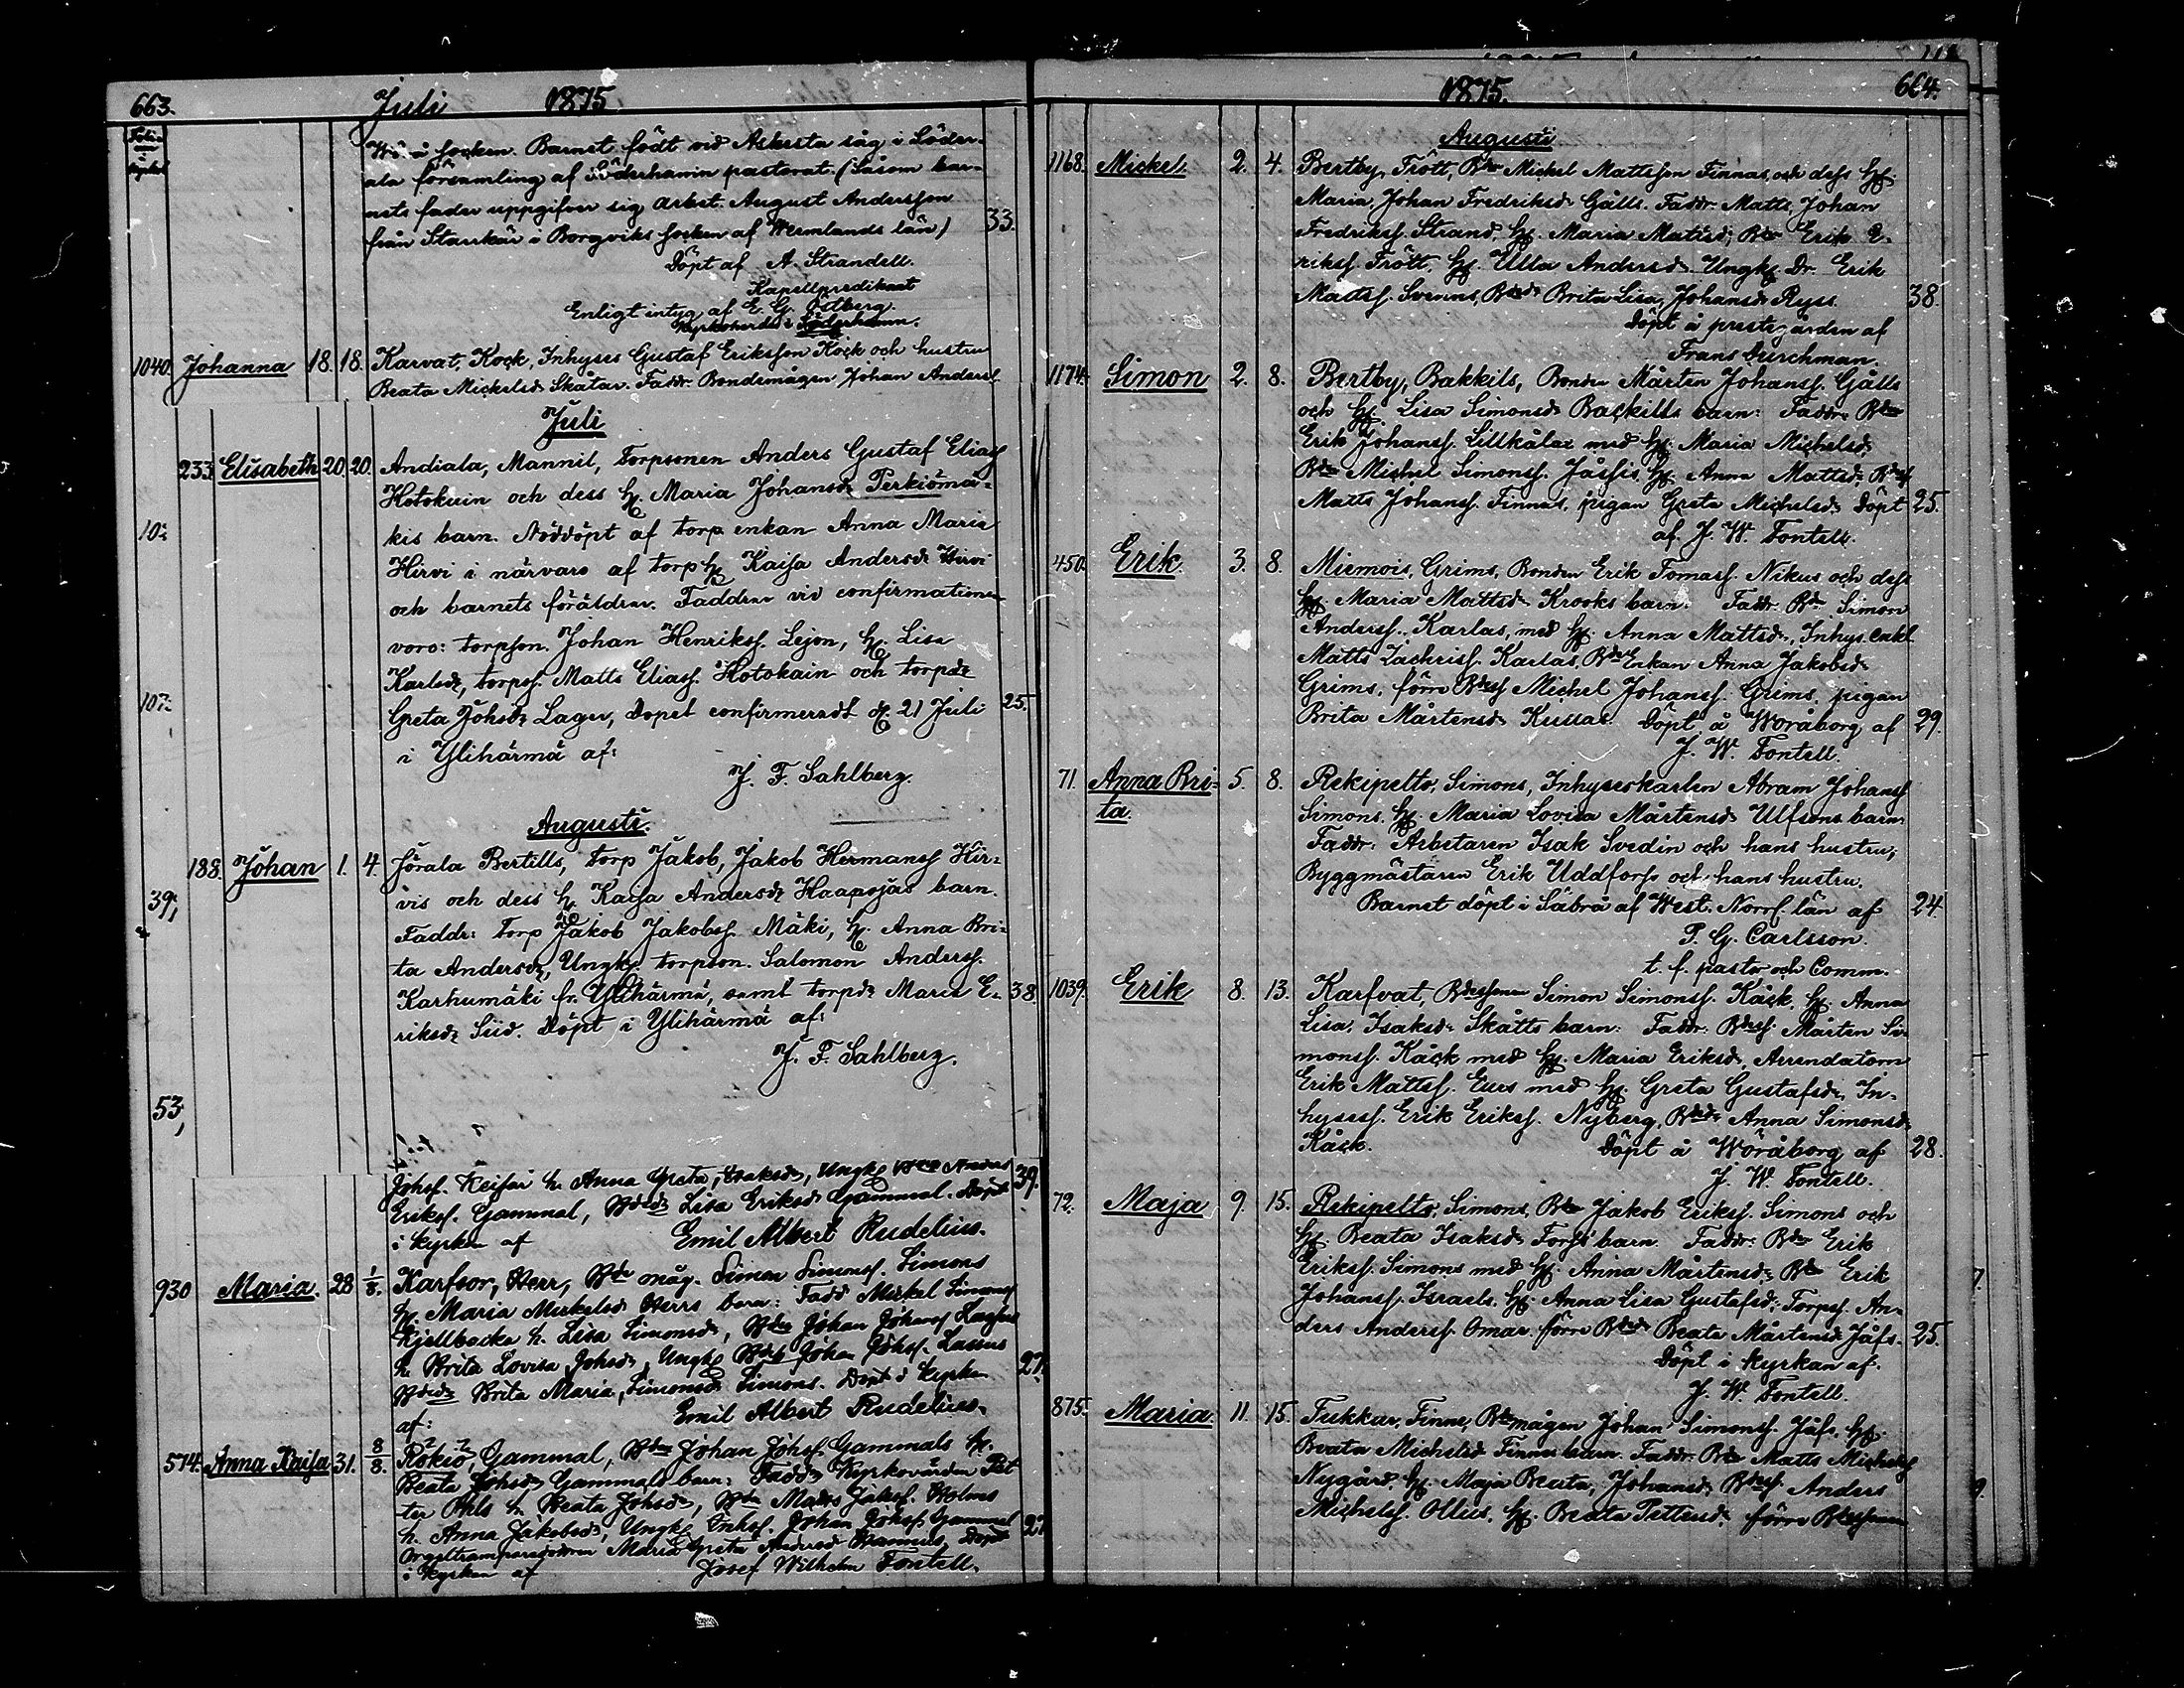 663. Juli 1875
Wörå socken. Barnet födt vid Askesta såg i Söder-
ala församling af Söderhamn pastorat. (Såsom bar-
nets fader uppgifver sig arbet. August Andersson
från Starrkärr i Borgviks socken af Wermlands län) 33.
Döpt af A. Strandell.
Kapellpredikant
Enligt intyg af E. G. Östberg.
Kyrkoherde i Söderhamn.
1040. Johanna 18. 18. Karvat, Kock, Inhyses Gustaf Eriksson Kock och hustru
Beata Mickelsdr Skåtar. Faddr. Bondemågen Johan Anderss.
Juli
233. Elisabeth 20. 20. Andiala, Mannil, torpsonen Anders Gustaf Eliass
Hotokain och dess H. Maria Johansdr Perkiömä-
kis barn. Nöddöpt af torp enkan Anna Maria
10:
Hirvi i närvaro af torp H. Kaisa Andersdr Hirvi
och barnets föräldrar. Faddrar vid confirmationen
voro: torpson. Johan Henrikss. Lejon, H. Lisa
Karlsdr, torps. Matts Eliass. Hotokain och torpdr
107:
Greta Johsdr Lager, Dopet confirmeradt d. 21 Juli 25.
i Ylihärmä af:
J. F. Sahlberg.
Augusti.
188. Johan 1. 4. Jörala Bertills, torp Jakob, Jakob Hermanss Hir-
vis och dess H. Kaisa Andersdr Haapojas barn.
39;
Faddr: Torp Jakob Jakobss. Mäki, H. Anna Bri-
ta Andersdr, Ungk. torpson. Salomon Anderss.
Karhumäki fr. Ylihärmä, samt torpdr Maria E- 38.
riksdr Siid. Döpt i Ylihärmä af:
J. F. Sahlberg.
53,
Johss. Keisar h. Anna Greta, Isaksdr, Ungk Anders 39.
Erikss. Gammal, Bdedr Lisa Eriksdr Gammal. Döpt
i kyrkan af Emil Albert Rudelius.
930 Maria. 28 1/8. Karfsor, Herr, Bde måg. Simon Simonss. Simons
H. Maria Mickelsdr Herrs barn: Fadd Mickel Simonss
Kjellbacka h. Lisa Simonsdr, Bden Johan Johanss Laghus
h. Brita Lovisa Johsdr, Ungk Bdes Johan Johss. Lassus 27.
Bdedr Brita Maria, Simonsdr Simons. Döpt i kyrkan
af: Emil Albert Rudelius.
574. Anna Kaisa 31. 8/8. Rökiö, Gammal, Bden Johan Johss Gammals H.
Beata Johsdr Gammals barn: Faddr Kyrkovärden Pet
ter Ohls h. Beata Johsdr, Bde Matts Jakss. Holms
h. Anna Jakobsdr, Ungk Inhss. Johan Johss Gammal 27
Orgeltramparedottren Maria Greta Andersd Hannus, Döpt
i kyrkan af Josef Wilhelm Fontell.
1875. 664.
Augusti
1168. Mickel 2. 4. Bertby, Trött, Bden Mickel Mattsson Finnas, och dess H.
Maria, Johan Fredriksdr Gålls. Faddr. Matts, Johan
Fredrikss. Strand, H. Maria Matsd; Bden Erik E-
rikss. Trött. H. Ulla Andersdr Ungk. Dr. Erik
Matts. Svenns, Bdedr Brita Lisa, Johansdr Ryss. 38.
Döpt å prestegården af
Frans Durchman.
1174. Simon 2. 8. Bertby, Bakkils, Bonden Mårten Johanss. Gålls
och H. Lisa Simonsdr Backills barn: Faddr. Bden
Erik Johanss. Lillkålar med H. Maria Michelsd;
Bden Michel Simonss. Jåssis, H. Anna Mattsd; Bdess
Matts Johanss. Finnas, pigan Greta Michelsdr Döpt 25.
af J. W. Fontell.
450. Erik. 3. 8. Miemois, Grims, Bonden Erik Tomass. Nikus och dess
H. Maria Mattsdr Krooks barn: Faddr. Bdn Simon
Anderss. Karlas, med H. Anna Mattsdr, Inhys. enkl
Matts Zachriss. Karlas, Bde Enkan Anna Jakobsdr
Grims, förre Bdess Michel Johanss. Grims, pigan
Brita Mårtensdr Kussar. Döpt å Woråborg af 29.
J. W. Fontell.
71. Anna Bri- 5. 8. Rekipelto, Simons, Inhyseskarlen Abram Johanss
ta. Simons, H. Maria Lovisa Mårtensdr Ulfsens barn:
Faddr: Arbetaren Isak Svedin och hans hustru;
Byggmästaren Erik Uddforss och hans hustru.
Barnet döpt i Säbrå af West. Norrl. län af 24.
P. G. Carlsson.
t. f. pastor och Comm.
1039. Erik 8. 13. Karfvat, Bdessonen Simon Simonss. Käck, H. Anna
Lisa, Isaksdr Skåtts barn: Faddr. Bdess. Mårten Si-
monss. Käck med H. Maria Eriksdr, Arrendatorn
Erik Mattss. Eurs med H. Greta Gustafsdr, In-
hysess. Erik Erikss. Nyberg, Bdedr Anna Simonsdr
Käck. Döpt å Wöråborg af 28.
J. W. Fontell.
72. Maja 9. 15. Rekipelto, Simons, Bden Jakob Erikss. Simons och
H. Beata Isaksdr Forss' barn. Faddr: Bden Erik
Erikss. Simons med H. Anna Mårtensdr Bden Erik
Johanss. Israels, H. Anna Lisa Gustafsd; Torpss. An-
ders Anderss. Omar, förre Bdedr Beata Mårtensdr Jåfs. 25.
Döpt i kyrkan af.
J. W. Fontell.
875. Maria. 11. 15. Tukkur, Finne, Bdemågen Johan Simonss. Jåfs, H.
Beata Michelsd Finnes barn. Faddr. Bden Matts Michelss
Nygård, H. Maja Beata, Johansdr Bdess. Anders
Michelss. Ollus, H. Beata Pettersd; förre Bdessonen